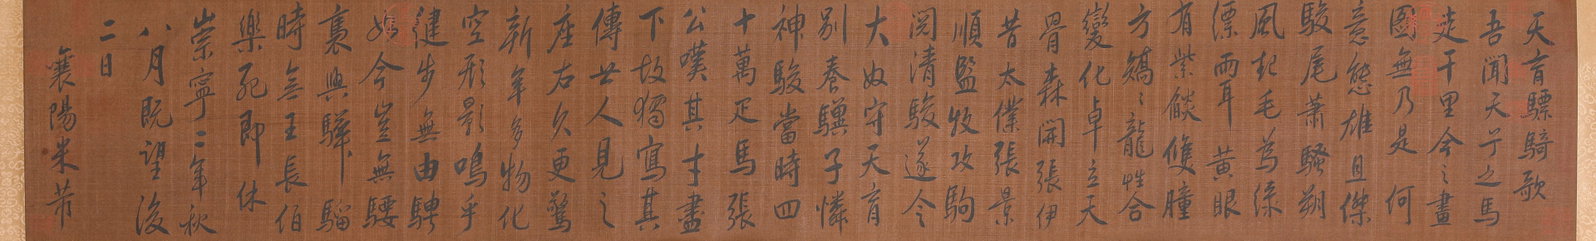 天育驃騎歌
吾聞天子之馬
走千里今之畫
圖無乃是何
意態雄且傑
駿尾蕭騷朔
風起毛為綠
縹兩耳黃眼
有紫燄雙瞳
方矯〻龍性合
變化卓立天
骨森開張伊
昔太僕張景
順監牧攻駒
閱清駿遂令
大奴守天育
別養驥子憐
神駿當時四
十萬疋馬張
公嘆其才盡
下故獨寫其
傳世人見之
座右久更驚
新年多物化
空形影嗚乎
健步無由騁
如今豈無騕
褭與驊騮
時無王良伯
樂死即休
崇寧二年秋
八月既望後
二日
襄陽米芾